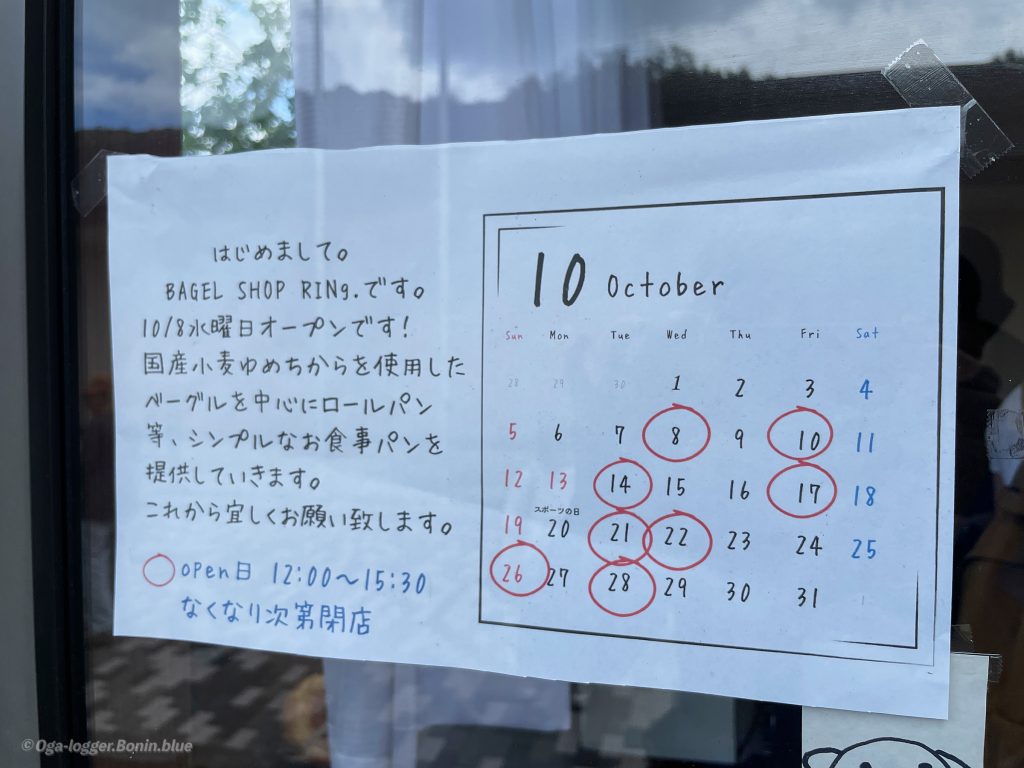 はじめまして。
BAGEL SHOP RINg.です。
10/8水曜日オープンです！
国産小麦ゆめちからを使用した
ベーグルを中心にロールパン
等、シンプルなお食事パンを
提供していきます。
これから宜しくお願い致します。
open日 12:00〜15:30
なくなり次第閉店
10 October
Sun Mon Tue Wed Thu Fri Sat
28 29 30 1 2 3 4
5 6 7 8 9 10 11
12 13 14 15 16 17 18
スポーツの日
19 20 21 22 23 24 25
26 27 28 29 30 31 1
©Oga-logger.Bonin.blue